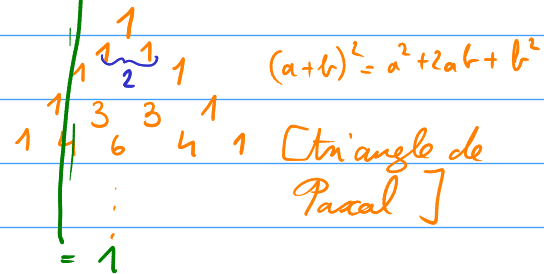 1
1 1
1 2 1 (a+b)²=a²+2ab+b²
1 3 3 1
1 4 6 4 1 [triangle de
Pascal]
= 1